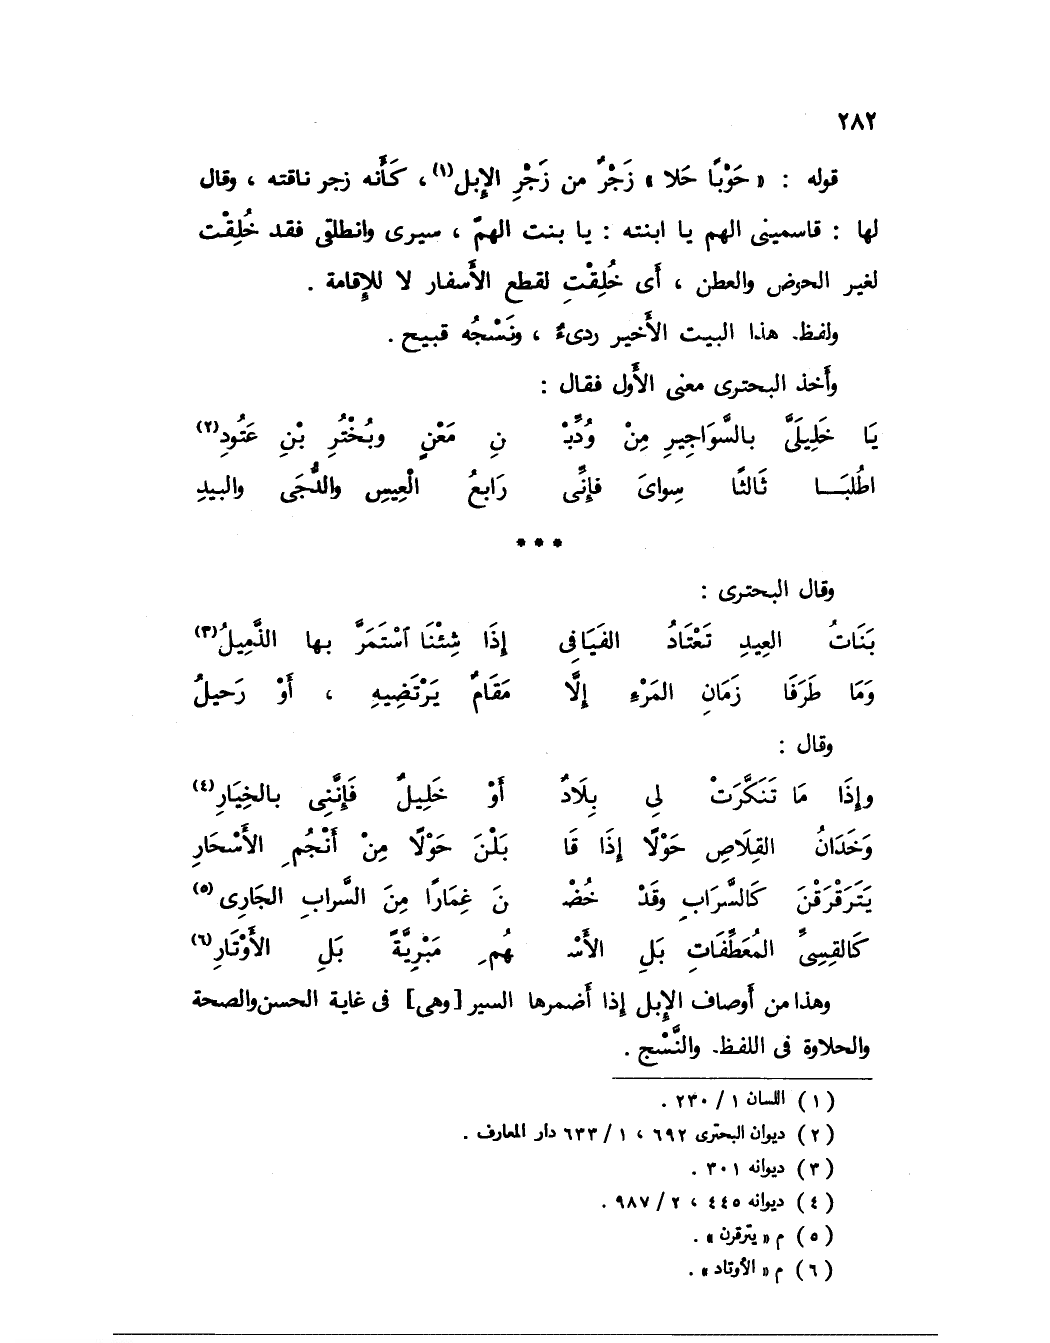 ٢٨٢
قوله : « حَوْبًا حَلا » زَجْرٌ من زَجْرِ الإبل(١)، كَأَنه زجر ناقته ، وقال
لها : قاسمينى الهم يا ابنته : يا بنت الهمّ ، سيرى وانطلقى فقد خُلِقْت
لغير الحوض والعطن ، أَى خُلِقْتِ لقطع الأَسفار لا للإِقامة .
ولفظ هذا البيت الأَخير ردىءٌ ، ونَسْجُه قبيح .
وأَخذ البحترى معنى الأَول فقال :
يَا خَلِيلَىَّ بالسَّوَاجِيرِ مِنْ وُدِّبْـ نِ مَعْنٍ وبُحْتُرِ بْنِ عَتُودِ(٢)
اطْلُبَـــا ثَالثًا سِواىَ فإنِّى رَابعُ الْعِيسِ والدُّجَى والبيدِ
* * *
وقال البحترى :
بَنَاتُ العِيدِ تَعْتَادُ الفَيَافِى إِذَا شِئْنَا ٱسْتَمَرَّ بها الذَّمِيلُ(٣)
وَمَا طَرَفَا زَمَانِ المَرْءِ إِلَّا مَقَامٌ يَرْتَضِيهِ ، أَوْ رَحيلُ
وقال :
وإِذَا مَا تَنَكَّرَتْ لِى بِلَادٌ أَوْ خَلِيلٌ فَإِنَّنِى بالخِيَارِ(٤)
وَخَدَانُ القِلَاصِ حَوْلًا إِذَا قَا بَلْنَ حَوْلًا مِنْ أَنْجُمِ الأَسْحَارِ
يَتَرَقْرَقْنَ كَالسَّرَابِ وقَدْ خُضْـ نَ غِمَارًا مِنَ السَّرابِ الجَارِى(٥)
كَالقِسِىِّ المُعَطَّفَاتِ بَلِ الأَسْـ هُمِ مَبْرِيَّةً بَلِ الأَوْتَارِ(٦)
وهذا من أَوصاف الإِبل إِذا أَضمرها السير [وهى] فى غاية الحسن والصحة
والحلاوة فى اللفظ والنَّسْج .
(١) اللسان ١ / ٢٣٠ .
(٢) ديوان البحترى ٦٩٢ ، ١ / ٦٣٣ دار المعارف .
(٣) ديوانه ٣٠١ .
(٤) ديوانه ٤٤٥ ، ٢ / ٩٨٧ .
(٥) م « يترقرن » .
(٦) م « الأوتاد » .